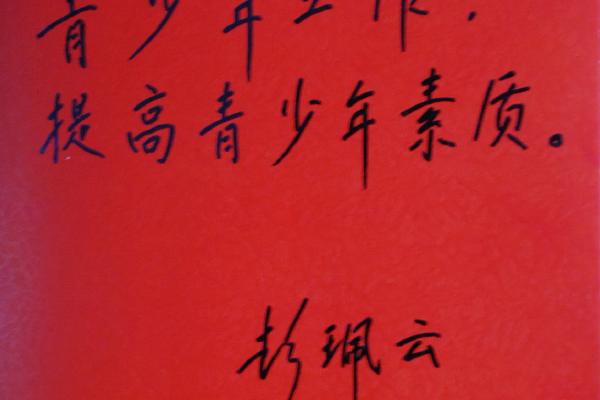 青少年工作，
提高青少年素质。
彭珮云